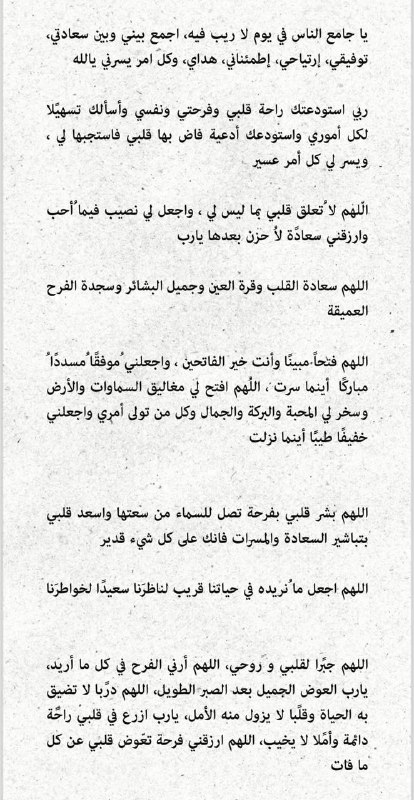 يا جامع الناس في يوم لا ريب فيه، اجمع بيني وبين سعادتي،
توفيقي، إرتياحي، إطمئناني، هداي، وكل امر يسرني يالله
ربي استودعتك راحة قلبي وفرحتي ونفسي وأسألك تسهيًلا
لكل أموري واستودعك أدعية فاض بها قلبي فاستجبها لي ،
ويسر لي كل أمر عسير
الّلهم لا ُتعلق قلبي بما ليس لي ، واجعل لي نصيب فيما ُأحب
وارزقني سعادًة لاُ حزن بعدها يارب
اللهم سعادة القلب وقرة العين وجميل البشائر وسجدة الفرح
العميقة
اللهم فتحاً مبينًا وأنت خير الفاتحين ، واجعلني ُموفقًا ُمسددًا ُ
مباركًا أينما سرت ، اللُهم افتح لي مغاليق السماوات والأرض
وسخر لي المحبة والبركة والجمال وكل من تولى أمري واجعلني
خفيفًا طيبًا أينما نزلت
اللهم بشر قلبي بفرحة تصل للسماء من سعتها واسعد قلبي
بتباشير السعادة والمسرات فانك على كل شيء قدير
اللهم اجعل ما ُنريده في حياتنا قريب لناظرَنا سعيدًا لخواطرَنا
اللهم جبًرا لقلبي و روحي، اللهم أرني الفرح في كل ما أريد،
يارب العوض الجميل بعد الصبر الطويل، اللهم درًبا لا تضيق
به الحياة وقلًبا لا يزول منه الأمل، يارب ازرع في قلبي راحًة
دائمة وأمًلا لا يخيب، اللهم ارزقني فرحة تعّوض قلبي عن كل
ما فات